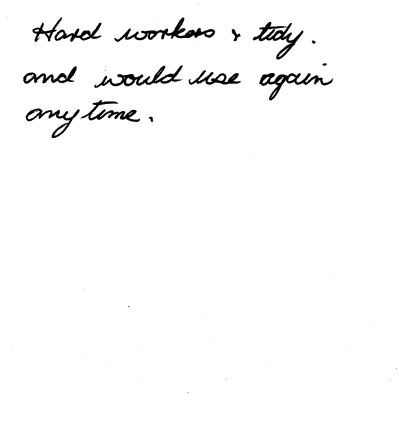 Hard workers & tidy.
and would use again
anytime.